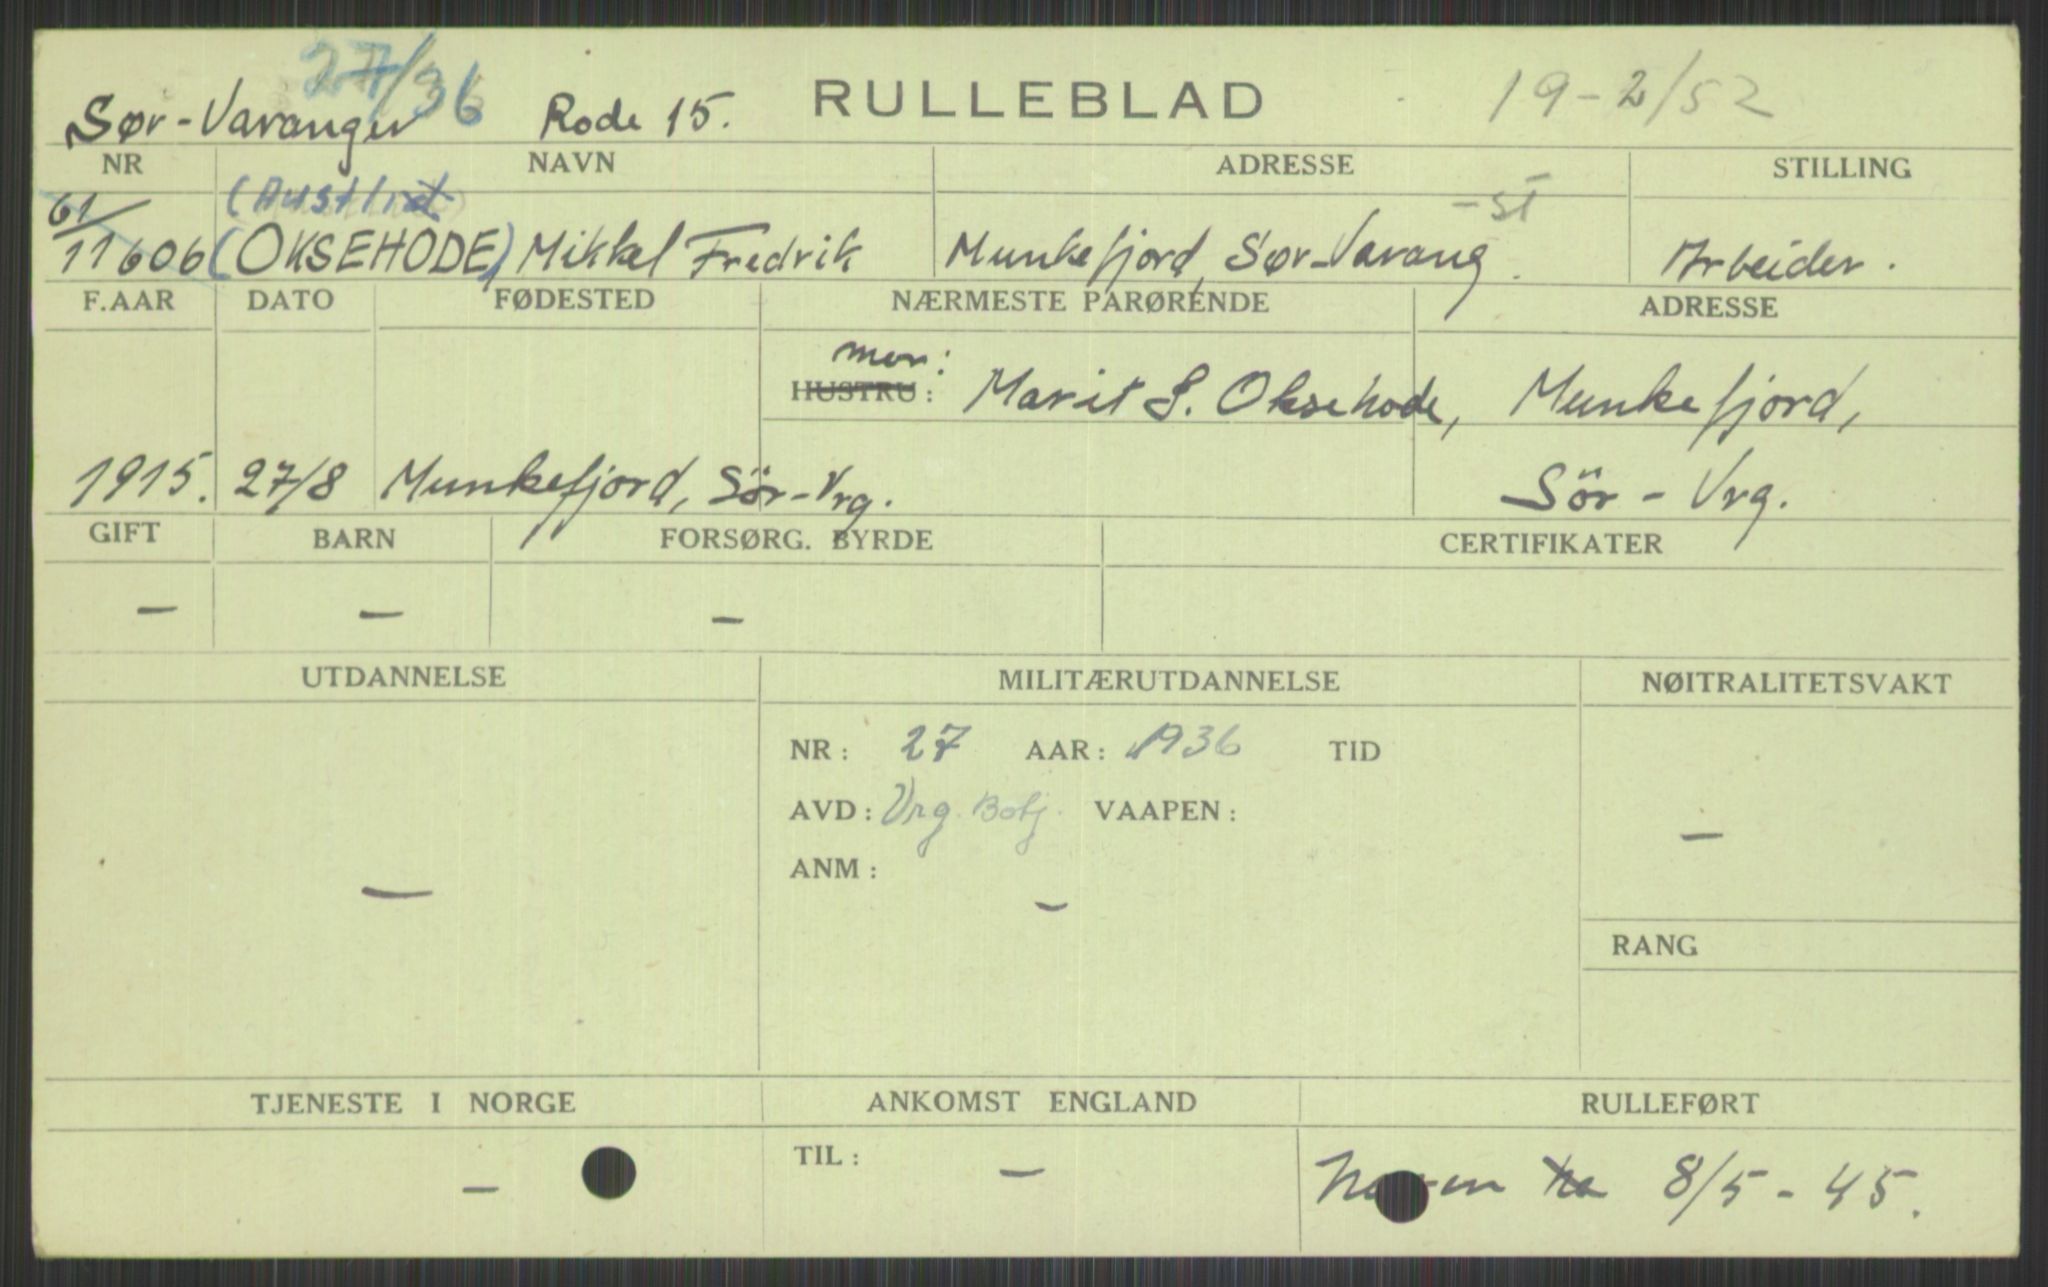 27/36
Sør-Varanger Rode 15. RULLEBLAD 19-2/52
NR NAVN ADRESSE STILLING
61/ (Austlid) -st
11606 (OKSEHODE) Mikkel Fredrik Munkefjord, Sør-Varang. Arbeider.
F.AAR DATO FØDESTED NÆRMESTE PARØRENDE ADRESSE
mor:
HUSTRU: Marit S. Oksehode, Munkefjord,
1915. 27/8 Munkefjord, Sör-Vrg. Sör-Vrg.
GIFT BARN FORSØRG. BYRDE CERTIFIKATER
— — —
UTDANNELSE MILITÆRUTDANNELSE NØITRALITETSVAKT
NR: 27 AAR: 1936 TID
AVD: Vrg. VAAPEN: —
ANM:
— —
RANG
TJENESTE I NORGE ANKOMST ENGLAND RULLEFØRT
— TIL: — 8/5-45.